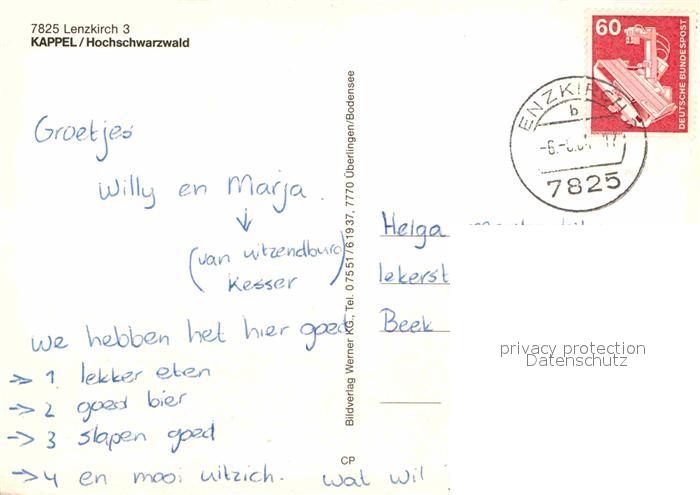 7825 Lenzkirch 3
KAPPEL / Hochschwarzwald
60
DEUTSCHE BUNDESPOST
ENZKIRCH
b
7825
Groetjes
Willy en Marja.
(van uitzendburo
Kesser)
we hebben het hier goed
→ 1 lekker eten
→ 2 goed bier
→ 3 slapen goed
→ 4 en mooi uitzich. wat wil
Bildverlag Werner KG, Tel. 0 75 51 / 6 19 37, 7770 Überlingen/Bodensee
CP
Helga
lekerst
Beek
privacy protection
Datenschutz